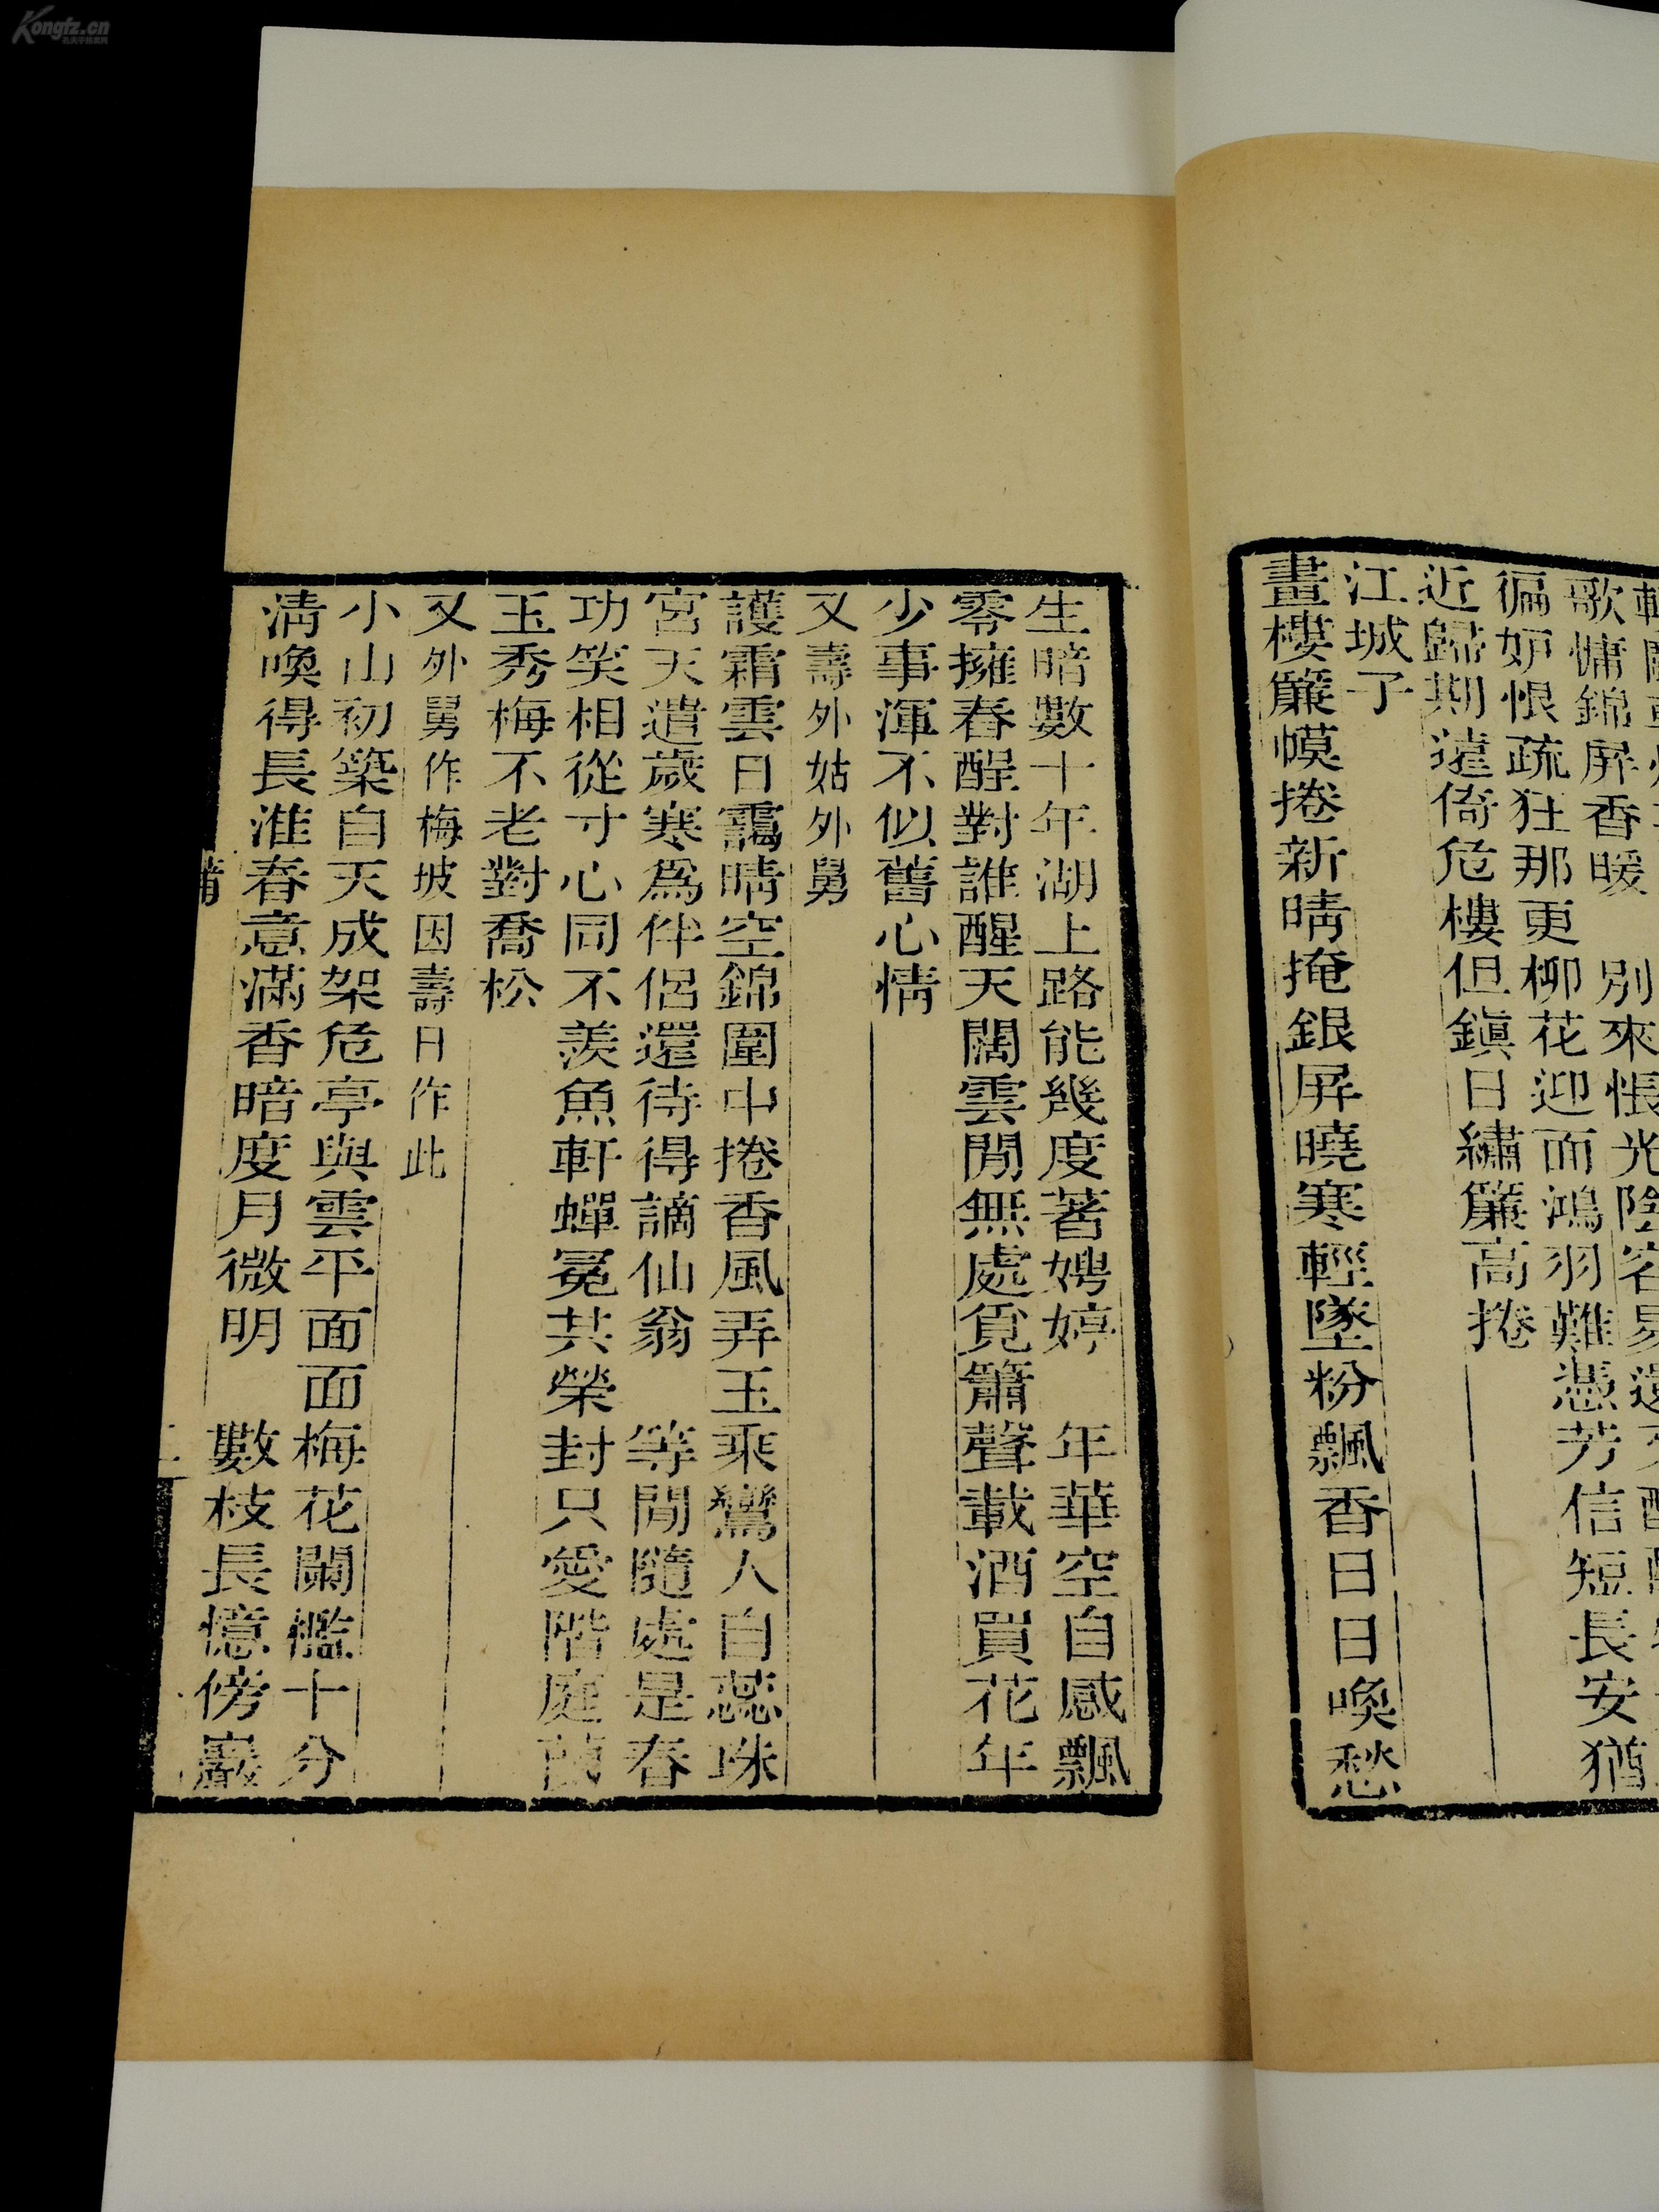 歌慵錦屏香暖　別來悵光陰容易還
徧妒恨疏狂那更柳花迎面鴻羽難憑芳信短長安猶
近歸期遠倚危樓但鎮日繡簾高捲
江城子
畫樓簾幙捲新晴掩銀屏曉寒輕墜粉飄香日日喚愁
生暗數十年湖上路能幾度著娉婷　年華空自感飄
零擁春酲對誰醒天闊雲閒無處覓簫聲載酒買花年
少事渾不似舊心情
又壽外姑外舅
護霜雲日靄晴空錦圍中捲香風弄玉乘鸞人自蕊珠
宮天遣歲寒爲伴侶還待得謫仙翁　等閒隨處是春
功笑相從寸心同不羨魚軒蟬冕共榮封只愛階庭蘭
玉秀梅不老對喬松
又外舅作梅坡因壽日作此
小山初築自天成架危亭與雲平面面梅花闌檻十分
淸喚得長淮春意滿香暗度月微明　數枝長憶傍巖
二
Kongfz.cn